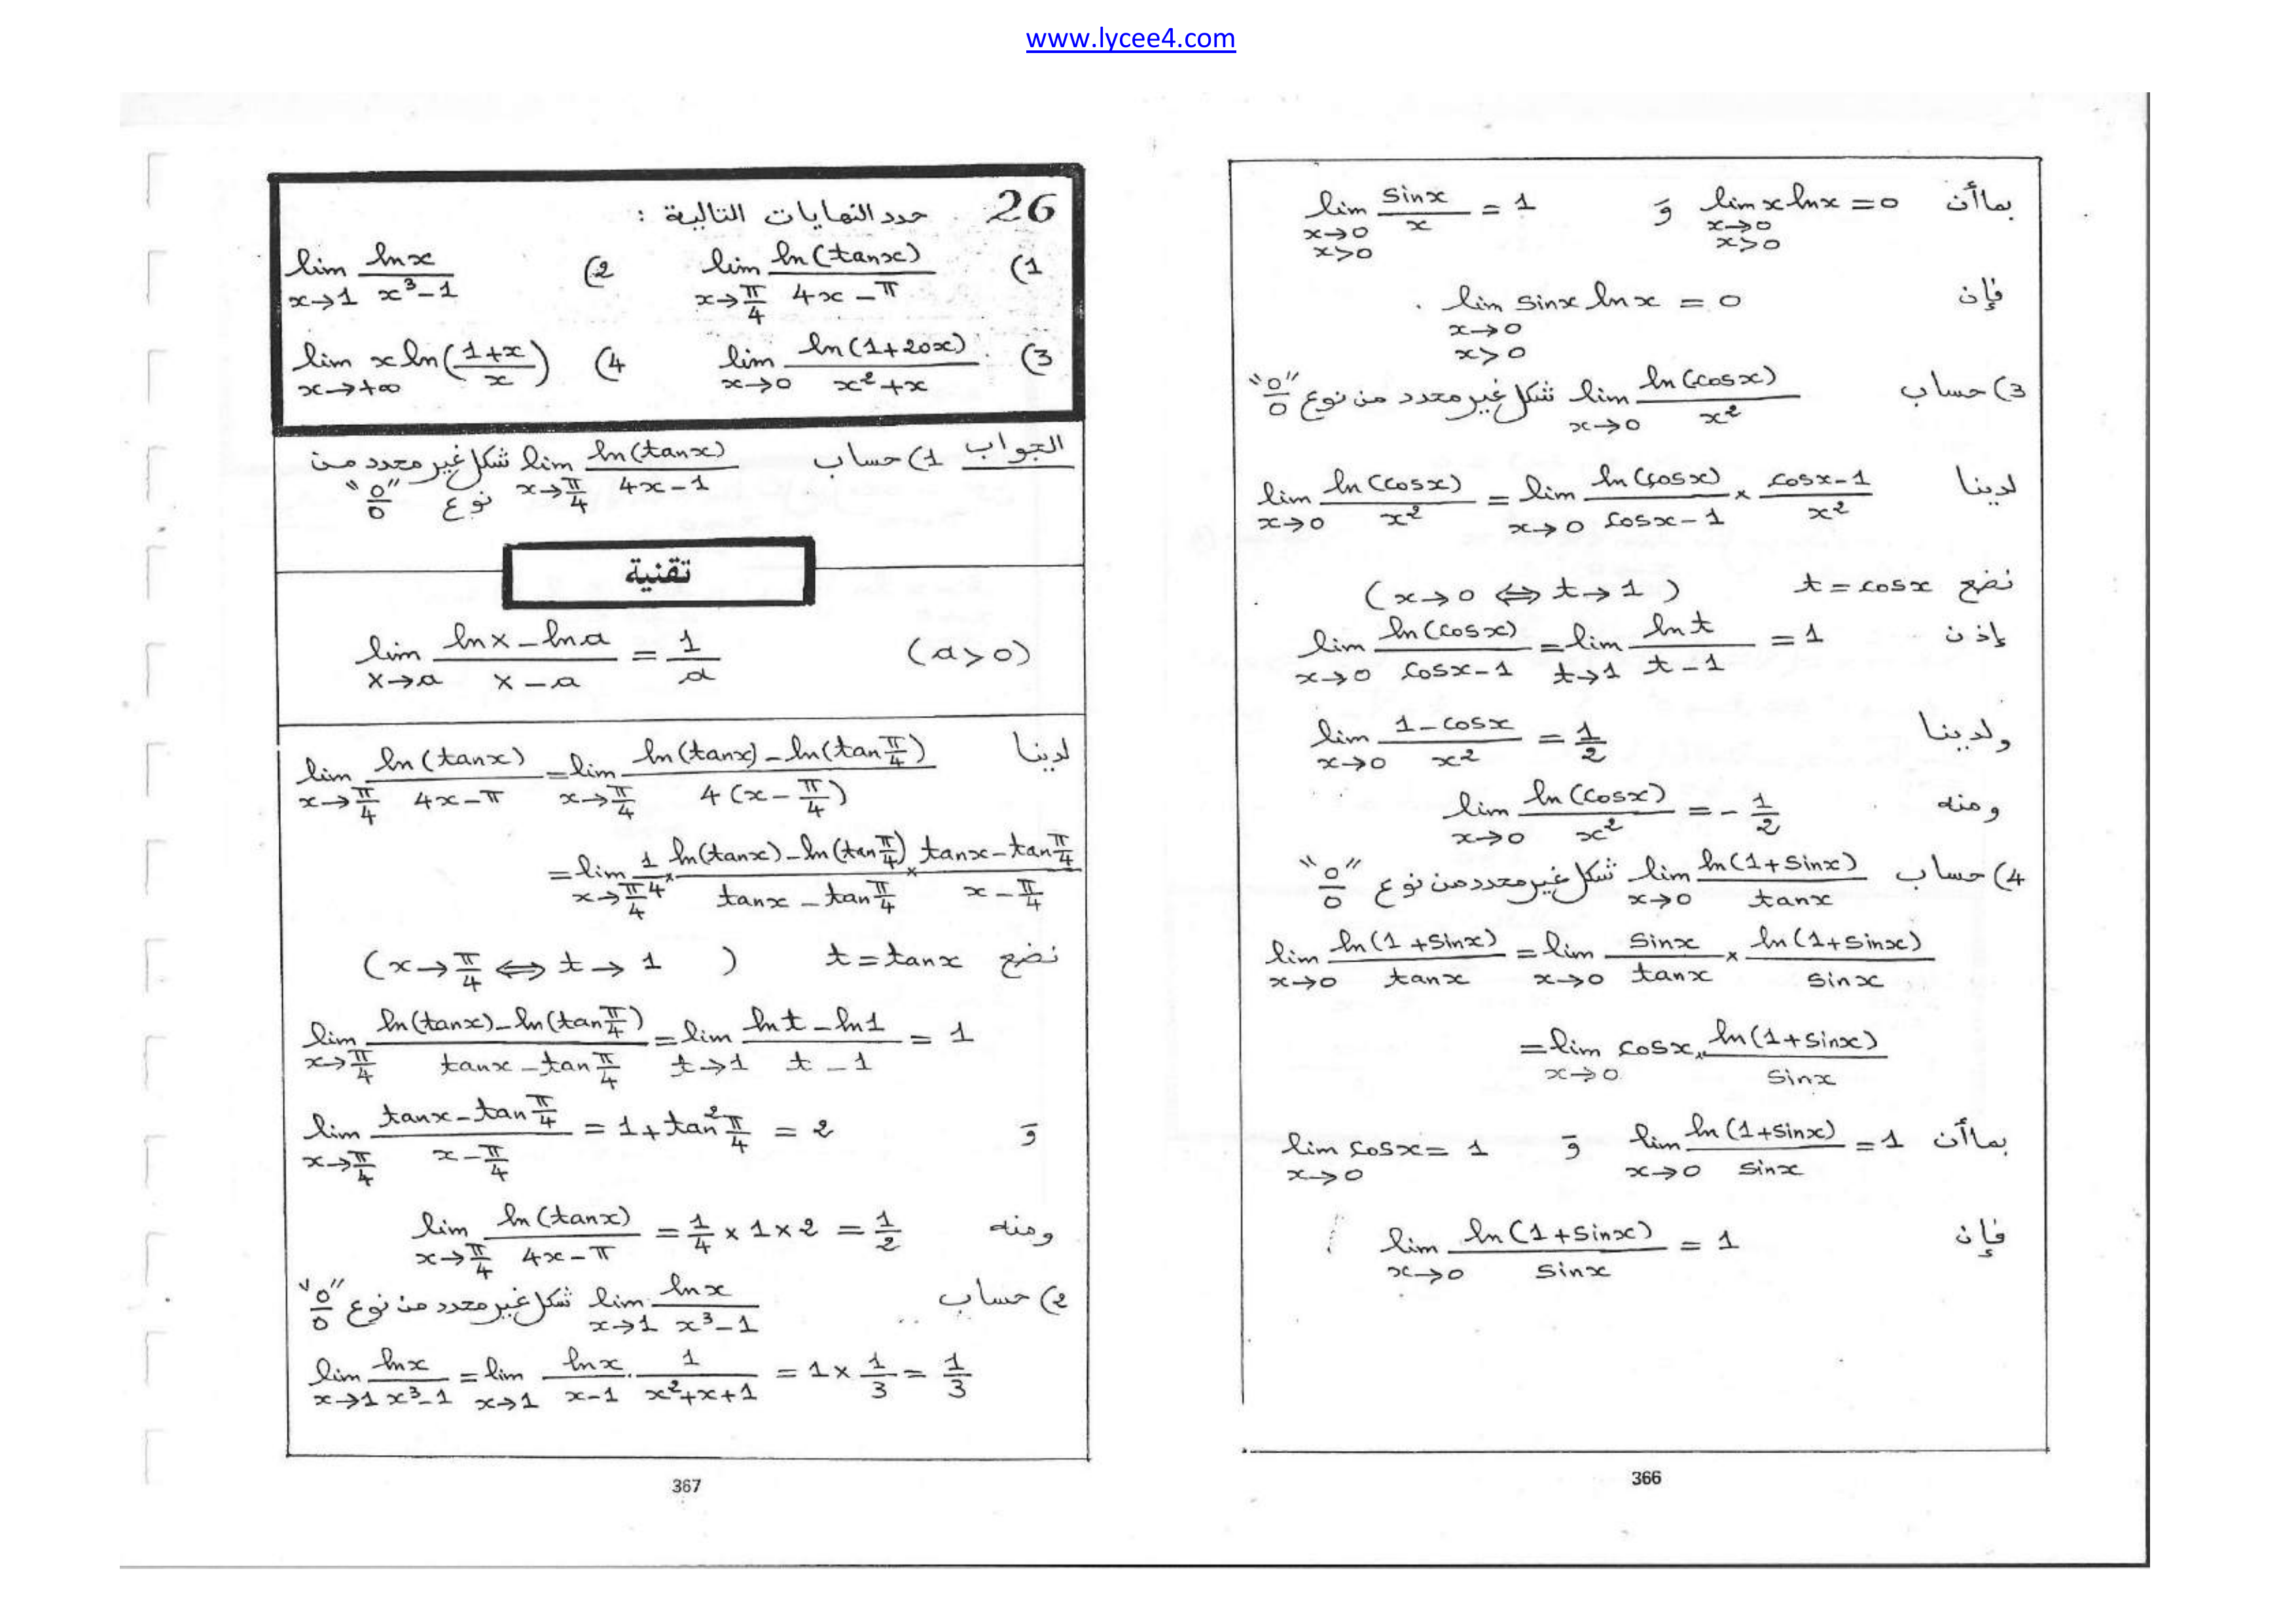 www.lycee4.com
بما أن lim_{x→0, x>0} x ln x = 0 وَ lim_{x→0, x>0} sin x / x = 1
فإن lim_{x→0, x>0} sin x ln x = 0 .
3) حساب lim_{x→0} ln(cos x) / x² شكل غير محدد من نوع "0/0"
لدينا lim_{x→0} ln(cos x) / x² = lim_{x→0} ln(cos x) / (cos x - 1) × (cos x - 1) / x²
نضع t = cos x ( x→0 ⇔ t→1 )
إذن lim_{x→0} ln(cos x) / (cos x - 1) = lim_{t→1} ln t / (t - 1) = 1
ولدينا lim_{x→0} (1 - cos x) / x² = 1/2
ومنه lim_{x→0} ln(cos x) / x² = - 1/2
4) حساب lim_{x→0} ln(1 + sin x) / tan x شكل غير محدد من نوع "0/0"
lim_{x→0} ln(1 + sin x) / tan x = lim_{x→0} sin x / tan x × ln(1 + sin x) / sin x
= lim_{x→0} cos x × ln(1 + sin x) / sin x
بما أن lim_{x→0} ln(1 + sin x) / sin x = 1 وَ lim_{x→0} cos x = 1
فإن lim_{x→0} ln(1 + sin x) / sin x = 1
366
26 حدد النهايات التالية :
1) lim_{x→π/4} ln(tan x) / (4x - π) 2) lim_{x→1} ln x / (x³ - 1)
3) lim_{x→0} ln(1 + 20x) / (x² + x) 4) lim_{x→+∞} x ln((1 + x) / x)
الجواب 1) حساب lim_{x→π/4} ln(tan x) / (4x - 1) شكل غير محدد من
نوع "0/0"
تقنية
(a > 0) lim_{x→a} (ln x - ln a) / (x - a) = 1/a
لدينا lim_{x→π/4} ln(tan x) / (4x - π) = lim_{x→π/4} (ln(tan x) - ln(tan π/4)) / (4(x - π/4))
= lim_{x→π/4} 1/4 × (ln(tan x) - ln(tan π/4)) / (tan x - tan π/4) × (tan x - tan π/4) / (x - π/4)
نضع t = tan x ( x→π/4 ⇔ t→1 )
lim_{x→π/4} (ln(tan x) - ln(tan π/4)) / (tan x - tan π/4) = lim_{t→1} (ln t - ln 1) / (t - 1) = 1
وَ lim_{x→π/4} (tan x - tan π/4) / (x - π/4) = 1 + tan² π/4 = 2
ومنه lim_{x→π/4} ln(tan x) / (4x - π) = 1/4 × 1 × 2 = 1/2
2) حساب lim_{x→1} ln x / (x³ - 1) شكل غير محدد من نوع "0/0"
lim_{x→1} ln x / (x³ - 1) = lim_{x→1} ln x / (x - 1) . 1 / (x² + x + 1) = 1 × 1/3 = 1/3
367